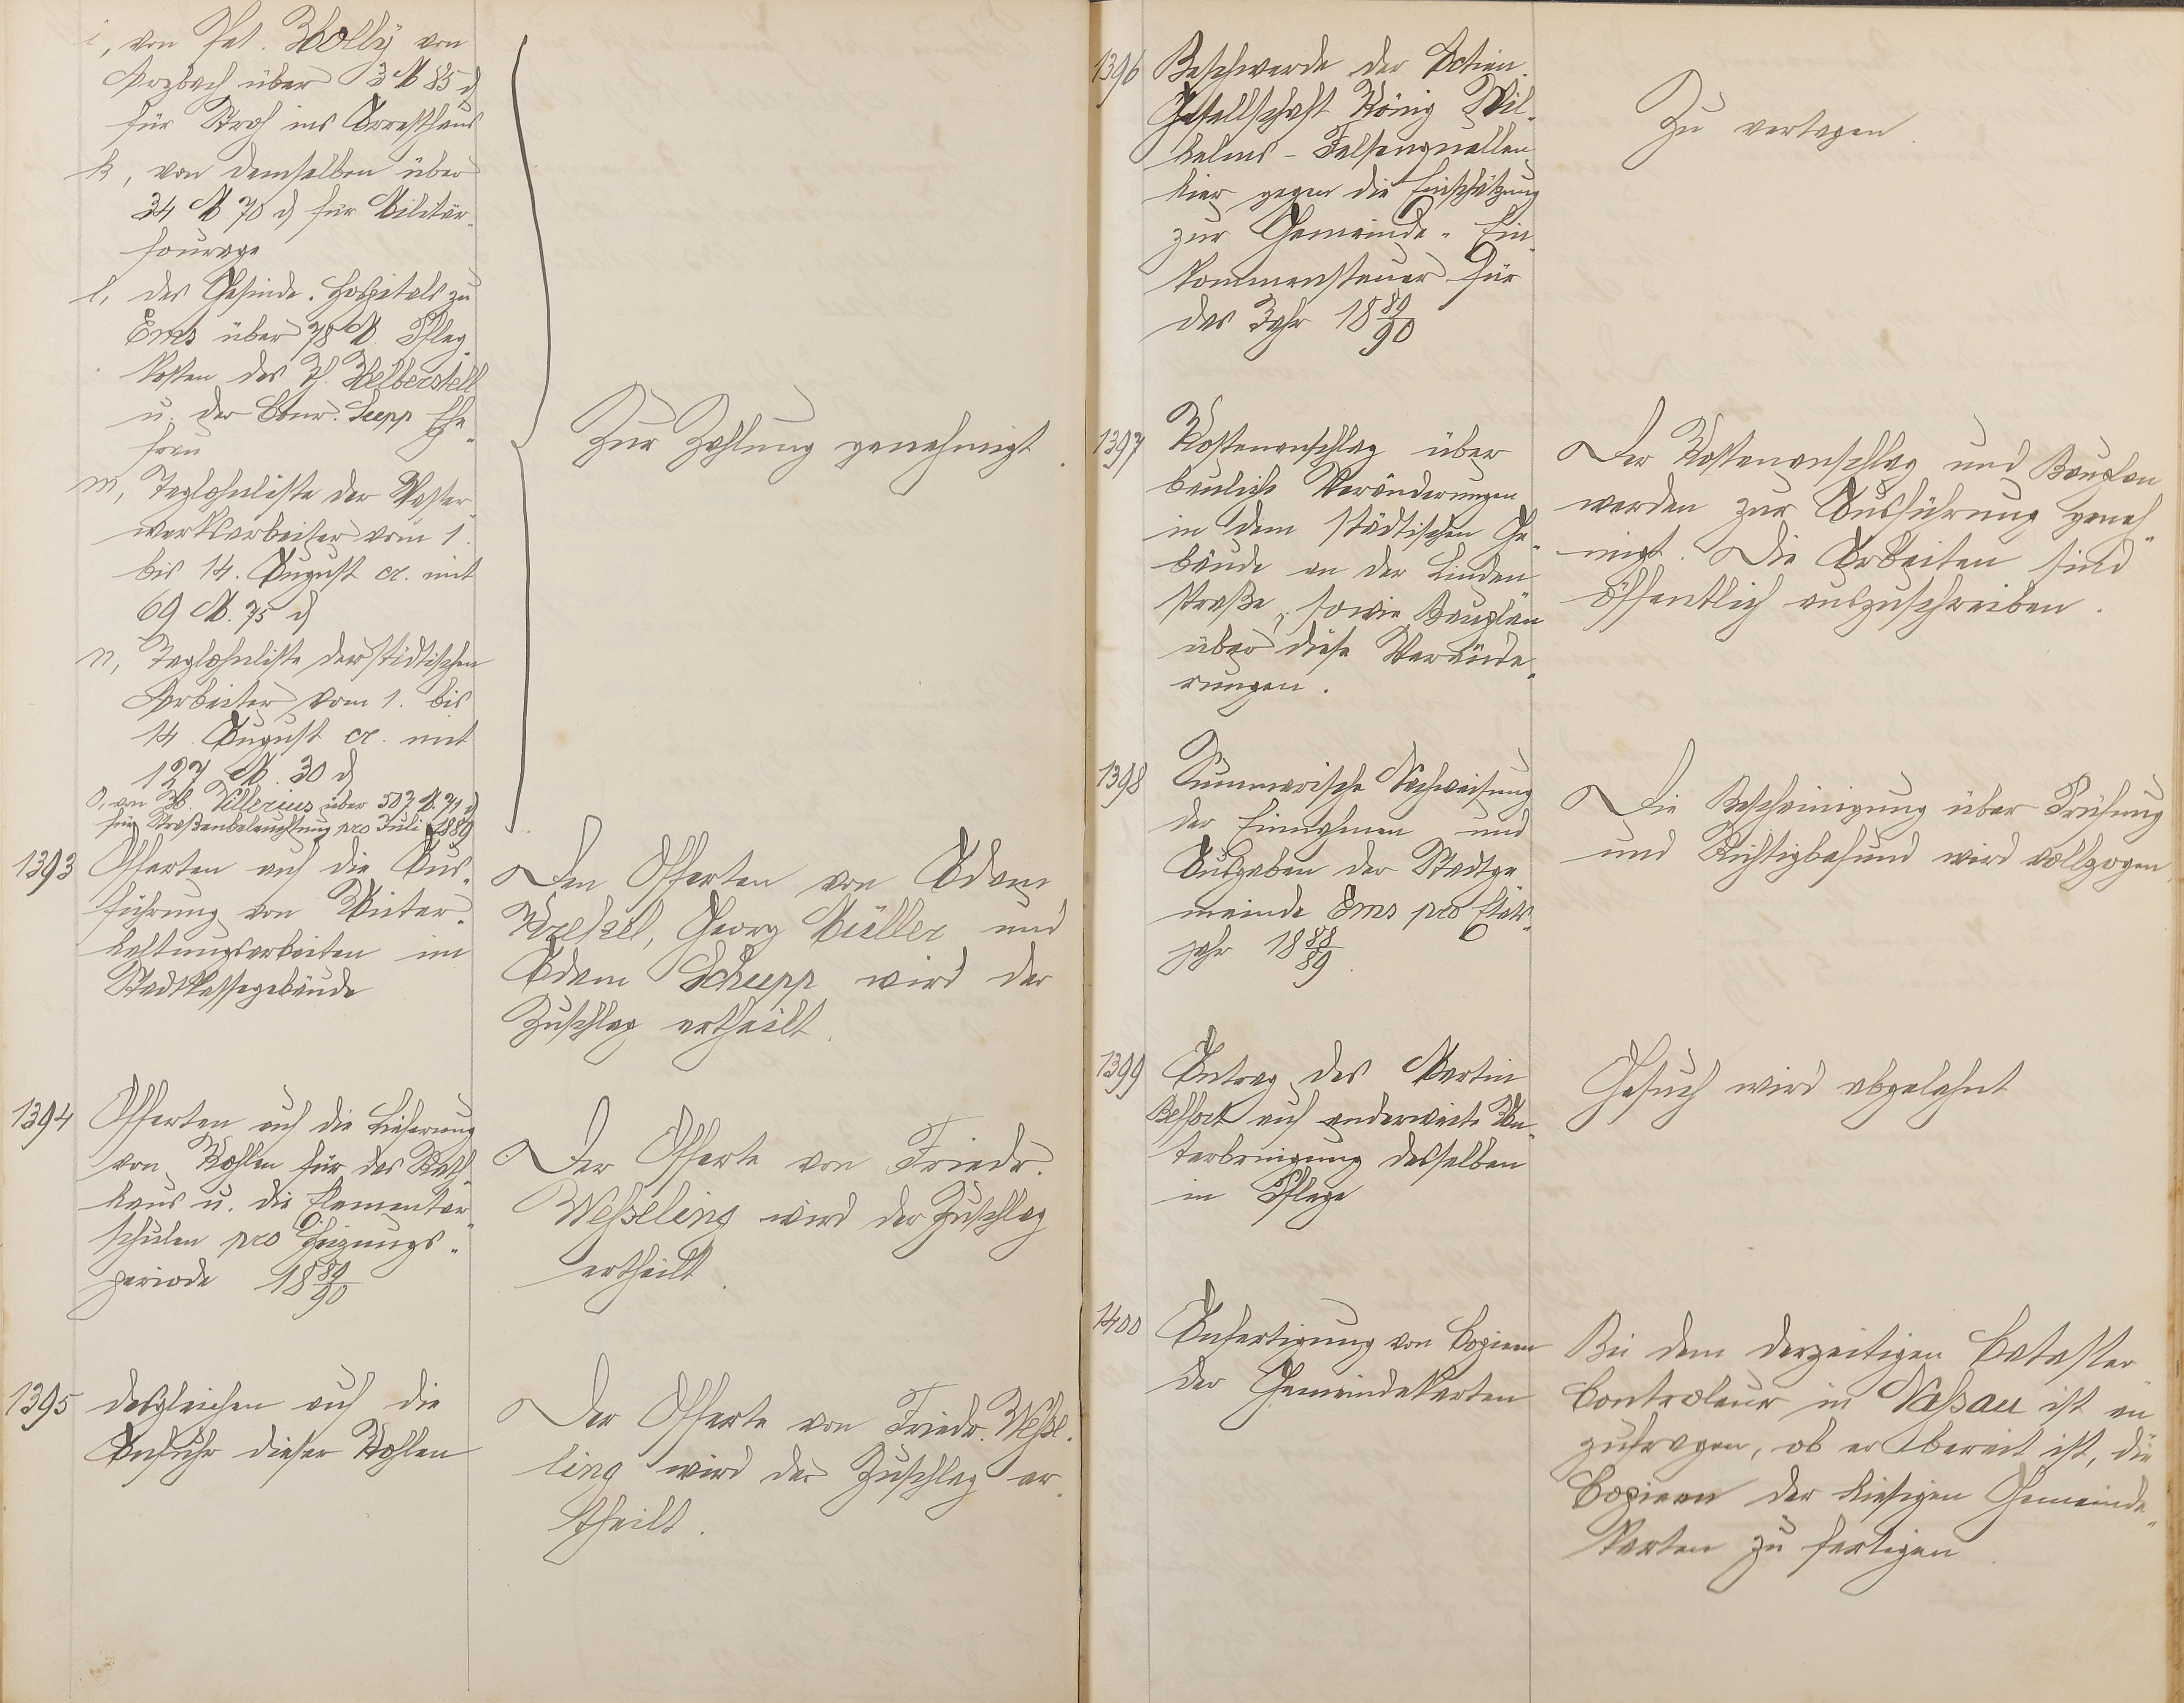 i, von Pet. Wolly von
Arzbach über 3 M 85 ₰
für Stroh ins Arresthaus
k, von demselben über
34 M. 70 ₰ für Militär-
fourage
l, des Gesinde-Hospitals zu
Ems über 78 M. Pfleg-
kosten des
u. der Ehe-
frau
m, Taglohnliste der Wasser-
werksarbeiter vom 1.
bis 14. August cr. mit
69 M. 75 ₰
n, Taglohnliste der städtischen
Arbeiter vom 1. bis
14. August cr. mit
127 M. 30 ₰
o, von Villerius über 507 M. 71 ₰
für Straßenbeleuchtung pro Juli 1889
Zur Zahlung genehmigt.
1393 Offerten auf die Aus-
führung von Unter-
haltungsarbeiten im
Stadtkassegebäude
Den Offerten von Adam
Krekel, Georg Müller und
Adam Schupp wird der
Zuschlag ertheilt.
1394 Offerten auf die Lieferung
von Kohlen für das Rath-
haus u. die Elementar-
schulen pro Heizungs-
periode 1889/90
Der Offerte von Friedr.
Weßeling wird der Zuschlag
ertheilt.
1395 desgleichen auf die
Anfuhr dieser Kohlen
Der Offerte von Friedr. Weße-
ling wird der Zuschlag er-
theilt.
1396 Beschwerde der Actien-
Gesellschaft König Wil-
helms-Felsenquellen
hier gegen die Einschätzung
zur Gemeinde-Ein-
kommensteuer für
das Jahr 1889/90
Zu vertagen.
1397 Kostenanschlag über
bauliche Veränderungen
in dem städtischen Ge-
bäude an der Linden-
straße, sowie Bauplan
über diese Verände-
rungen.
Der Kostenanschlag und Bauplan
werden zur Ausführung geneh-
migt. Die Arbeiten sind
öffentlich auszuschreiben.
1398 Summarische Nachweisung
der Einnahmen und
Ausgaben der Stadtge-
meinde Ems pro Etats-
jahr 1888/89.
Die Bescheinigung über Prüfung
und Richtigbefund wird vollzogen.
1399 Antrag des Martin
Beffort auf anderweite Un-
terbringung desselben
in Pflege
Gesuch wird abgelehnt
1400 Anfertigung von Copieen
der Gemeindekarten
Bei dem derzeitigen Cataster-
Controleur in Naßau ist an-
zufragen, ob er bereit ist, die
Copieen der hiesigen Gemeinde-
karten zu fertigen